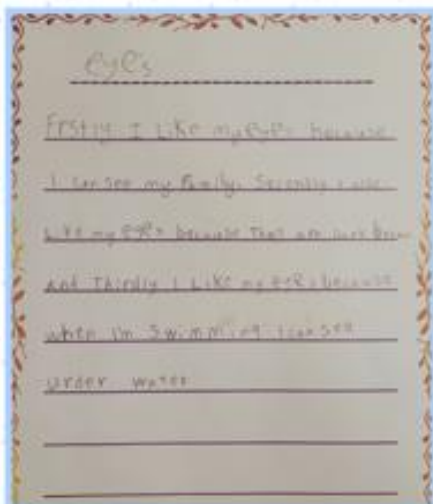 eye's
Frstly I Like my eyes because
I can see my family. Secontly I also
Like my eyes because that are dark Brown
and Thirdly I Like my eyes because
when im swimming I can see
under water